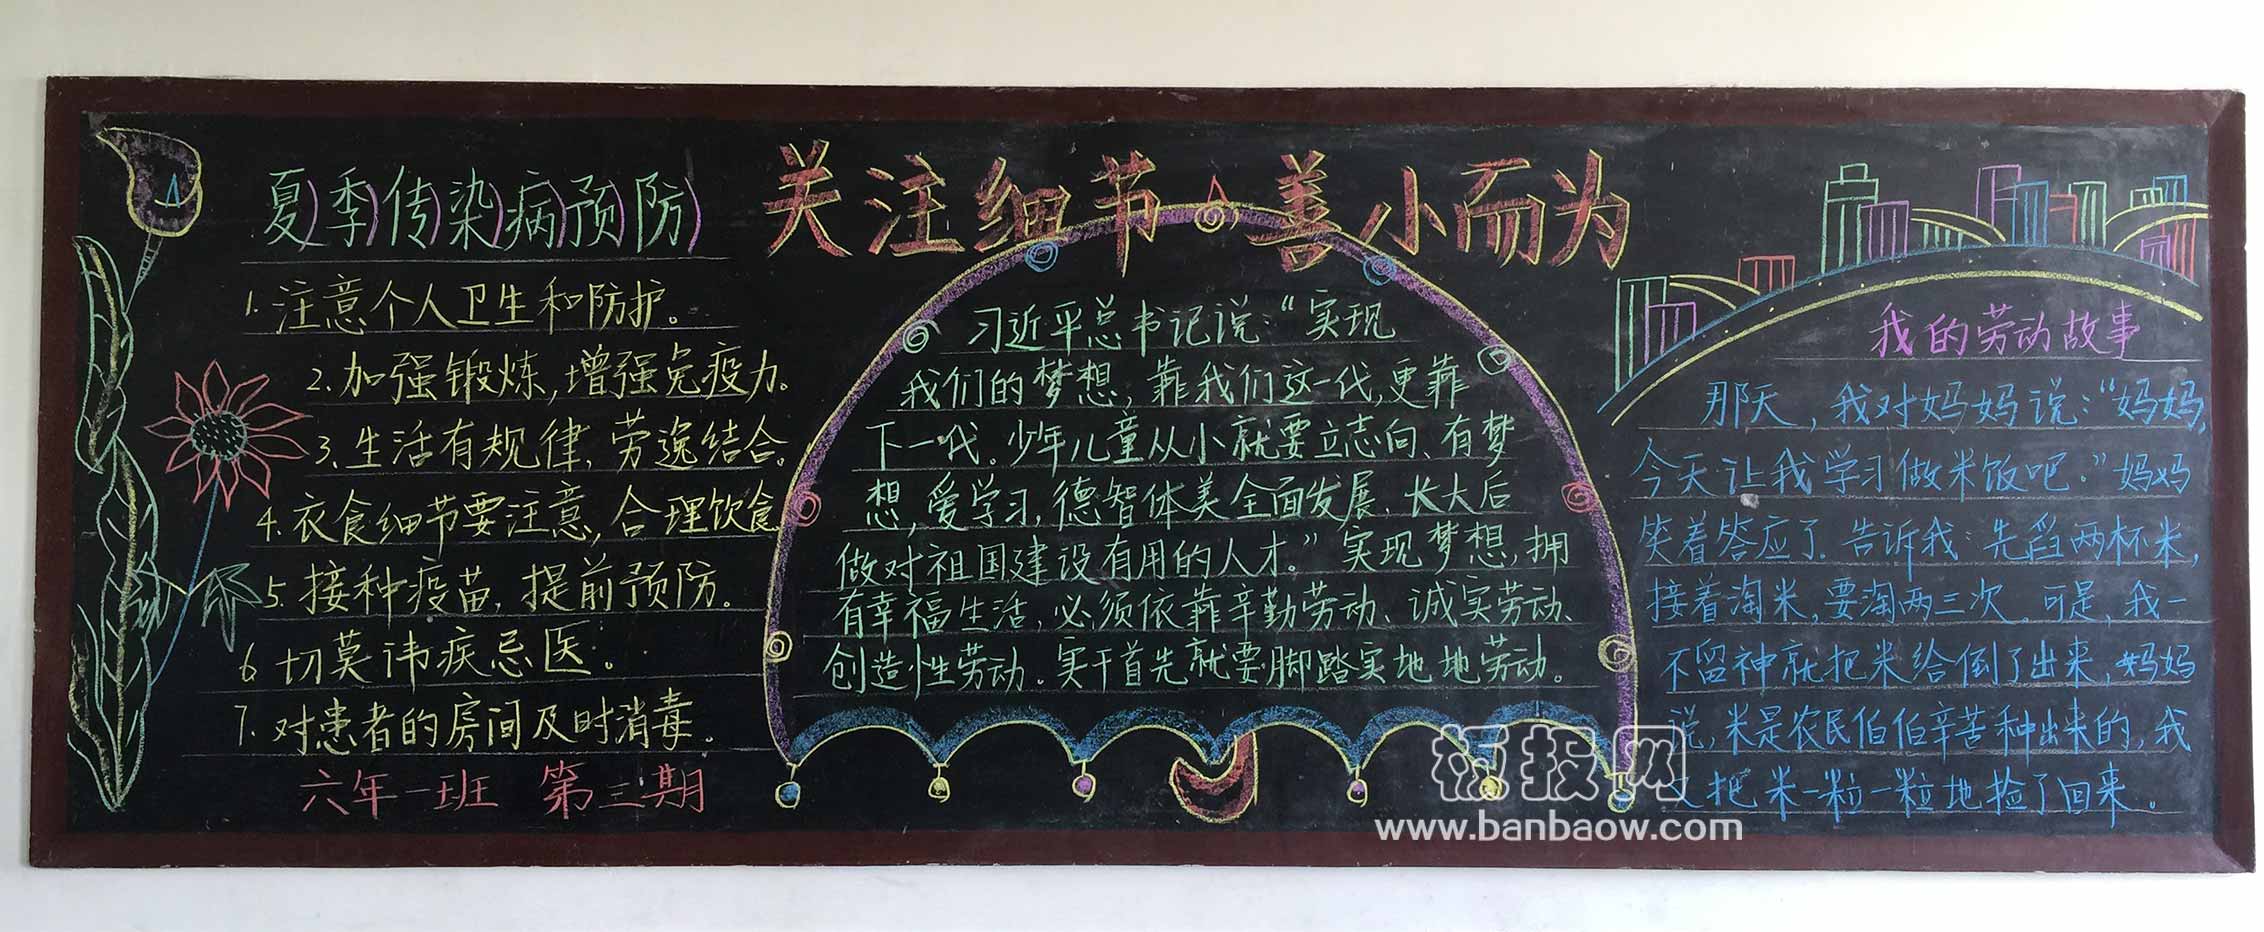 关注细节 善小而为
夏季传染病预防
1.注意个人卫生和防护。
2.加强锻炼,增强免疫力。
3.生活有规律,劳逸结合。
4.衣食细节要注意,合理饮食
5.接种疫苗,提前预防。
6 切莫讳疾忌医。
7.对患者的房间及时消毒。
六年一班 第三期
习近平总书记说:“实现
我们的梦想,靠我们这一代,更靠
下一代。少年儿童从小就要立志向、有梦
想,爱学习,德智体美全面发展,长大后
做对祖国建设有用的人才。”实现梦想,拥
有幸福生活,必须依靠辛勤劳动、诚实劳动、
创造性劳动。实干首先就要脚踏实地地劳动。
我的劳动故事
那天,我对妈妈说:“妈妈,
今天让我学习做米饭吧。”妈妈
笑着答应了.告诉我:先舀两杯米,
接着淘米,要淘两三次。可是,我一
不留神就把米给倒了出来,妈妈
说,米是农民伯伯辛苦种出来的,我
又把米一粒一粒地捡了回来。
板报网
www.banbaow.com